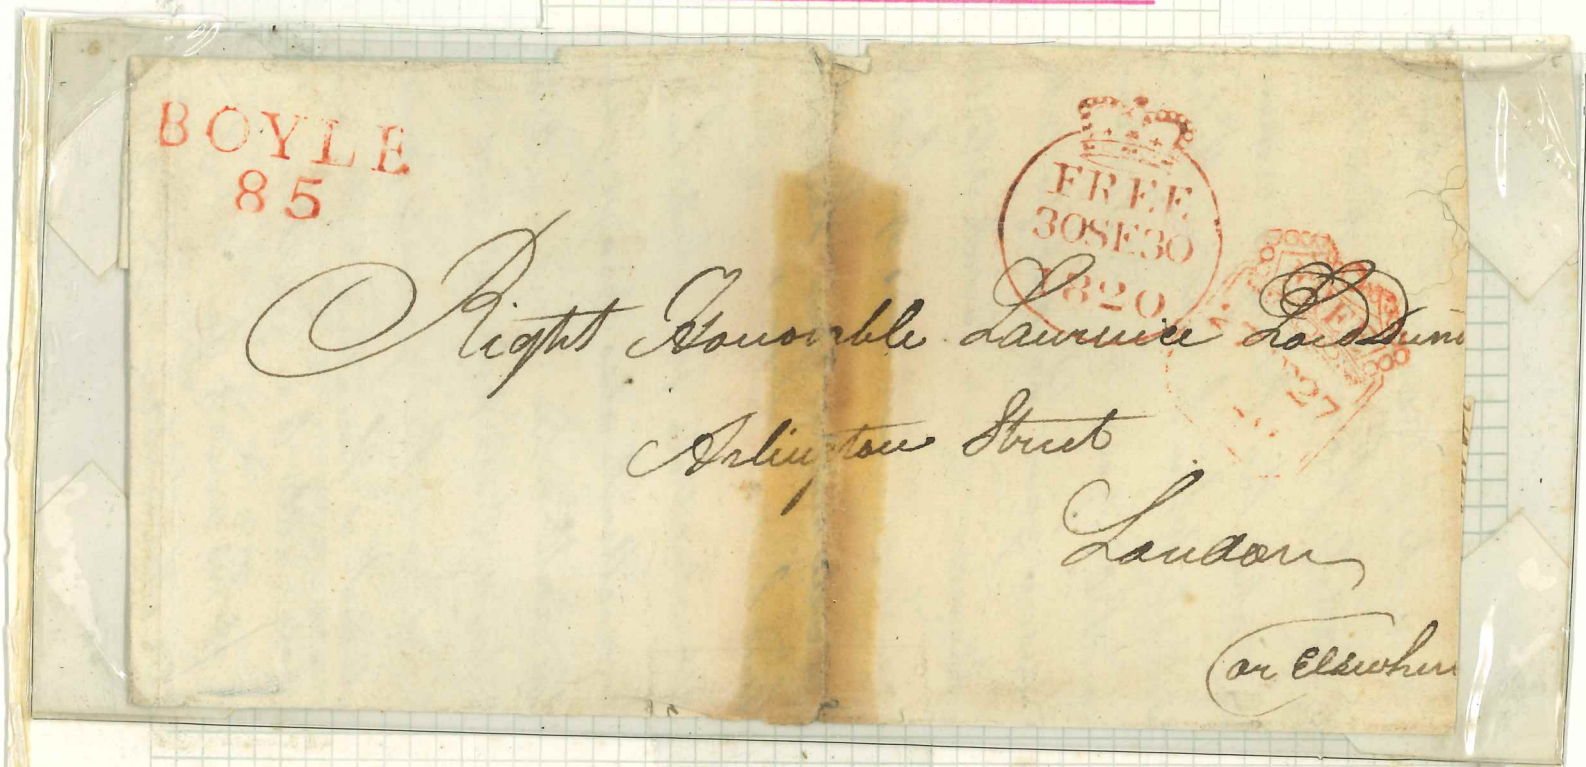 BOYLE
85
FREE
30SE30
1820
FREE
27
Right Honorble Laurence Lord Dun
Arlington Street
London
(or Elsewher